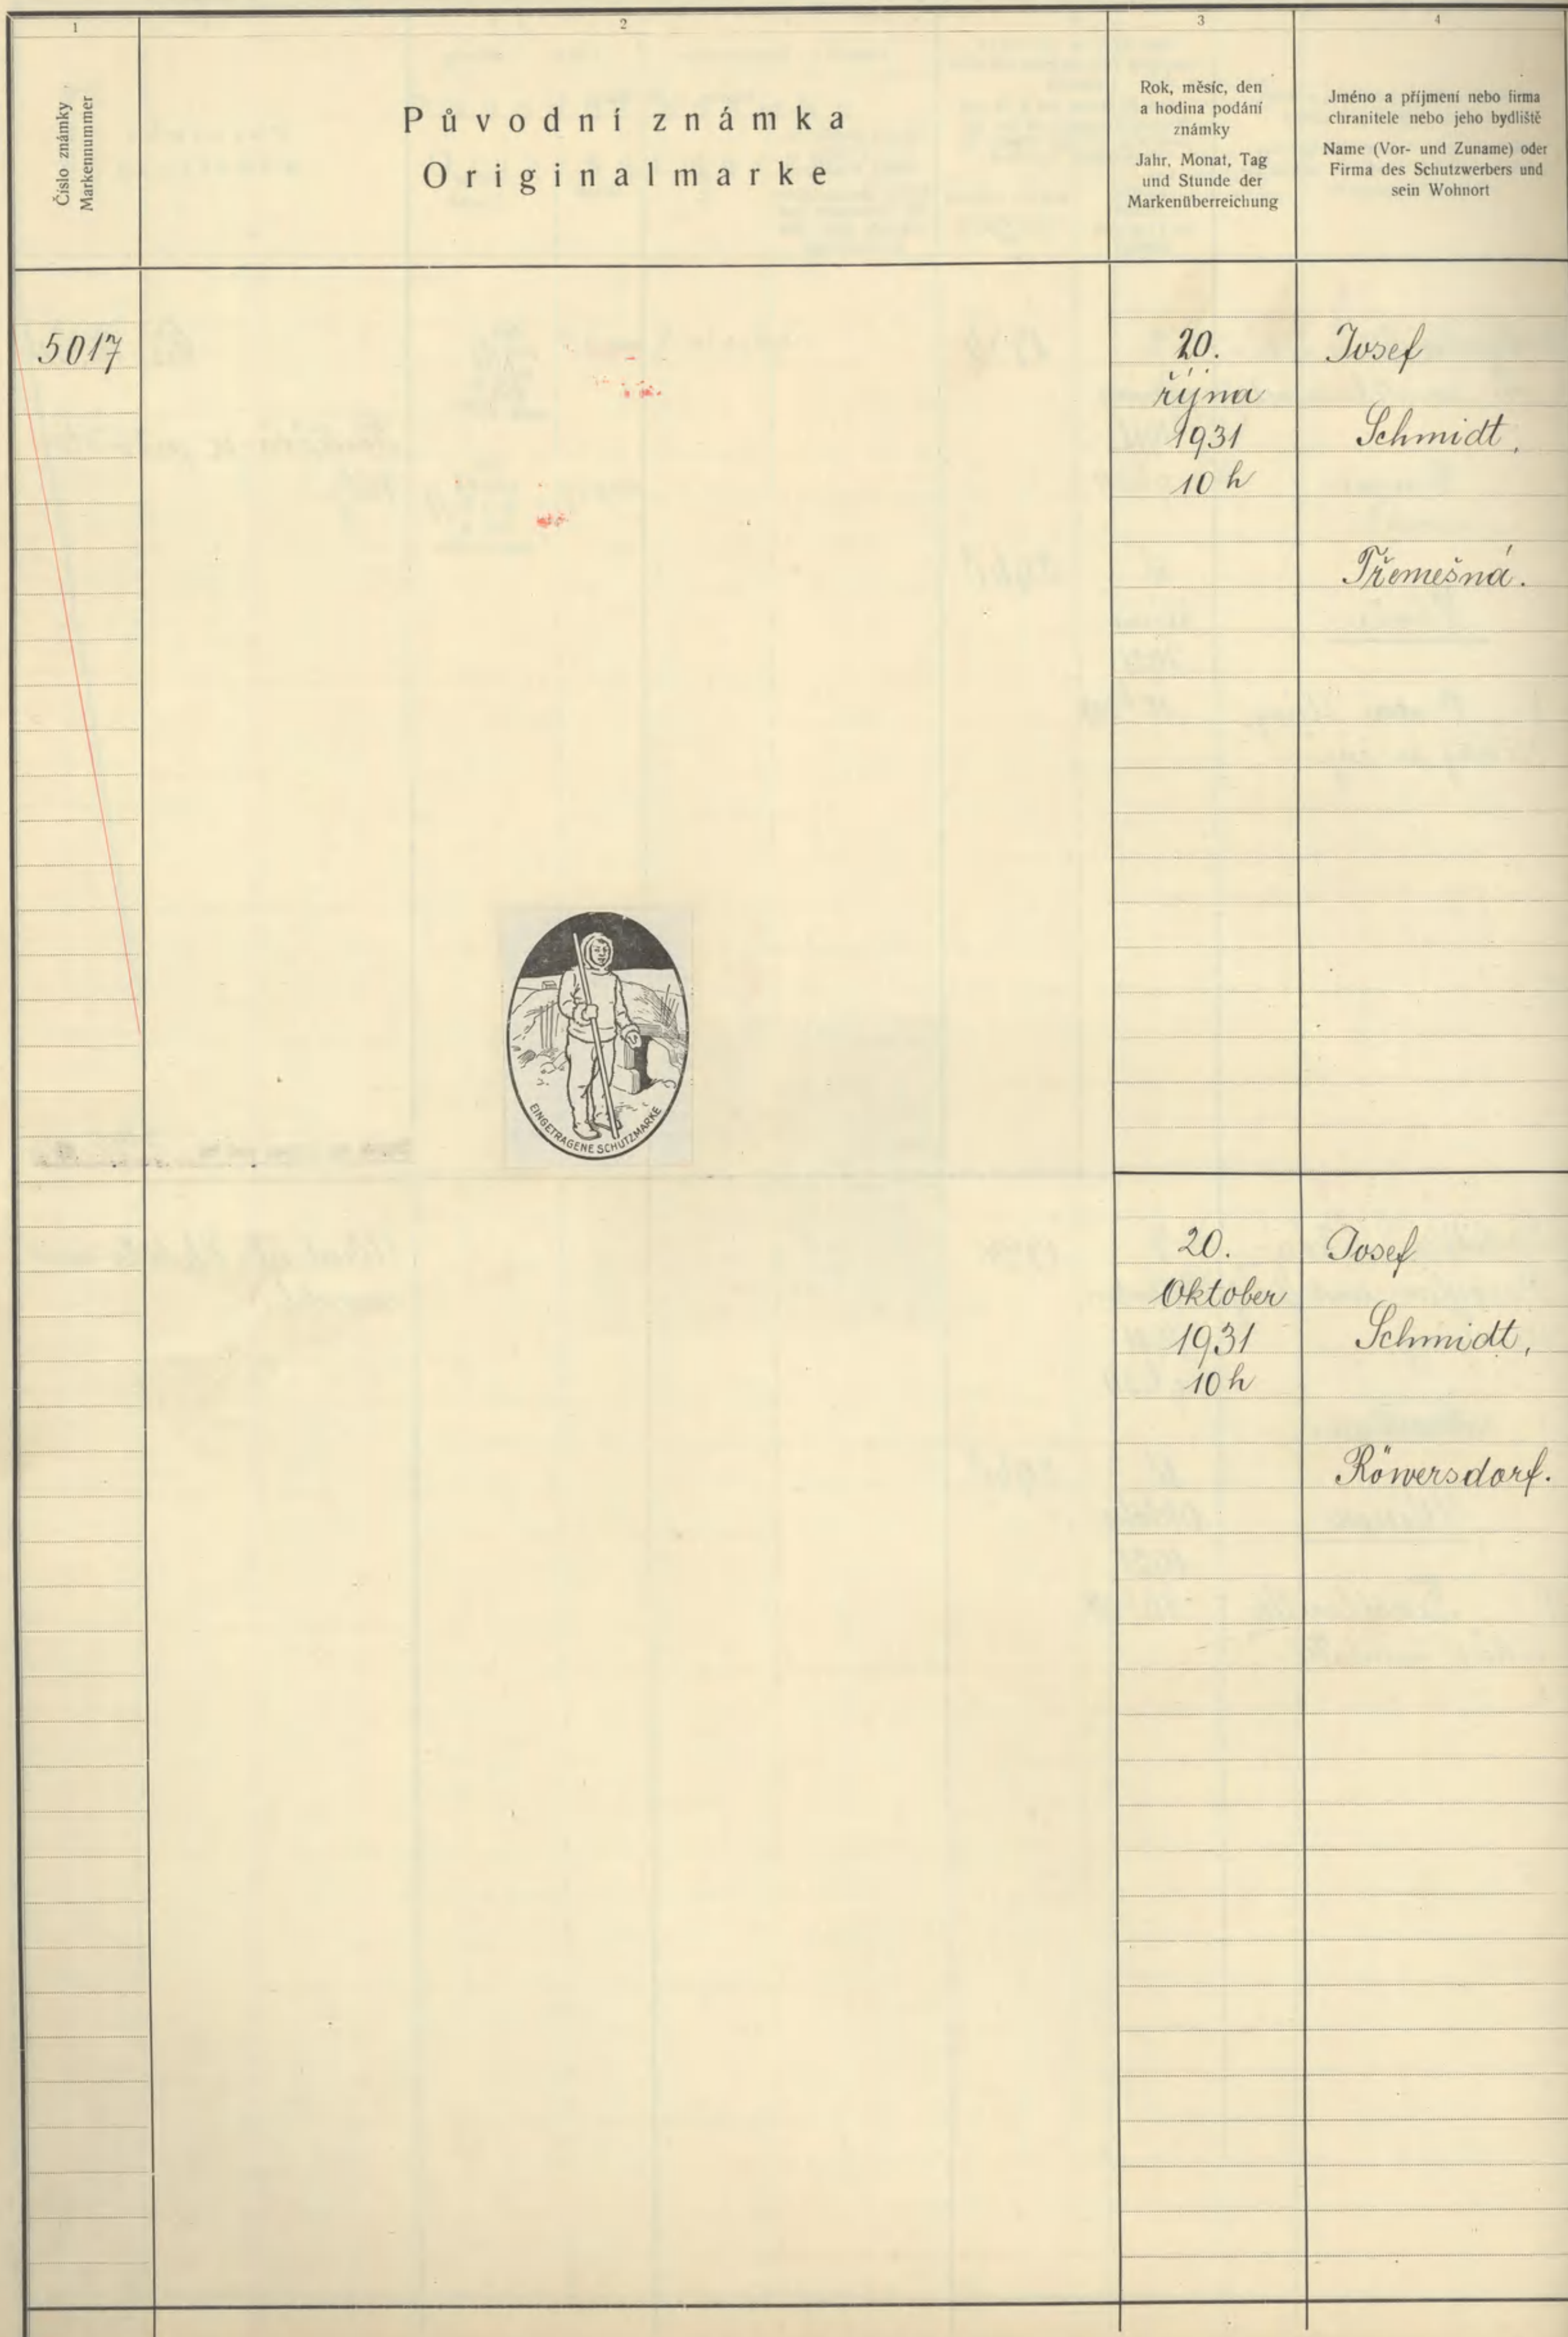 1
2
3
4
Číslo známky
Markennummer
Původní známka
Originalmarke
Rok, měsíc, den
a hodina podání
známky
Jahr, Monat, Tag
und Stunde der
Markenüberreichung
Jméno a příjmení nebo firma
chranitele nebo jeho bydliště
Name (Vor- und Zuname) oder
Firma des Schutzwerbers und
sein Wohnort
5017
20.
října
1931
10 h
Josef
Schmidt,
Třemešná.
EINGETRAGENE SCHUTZMARKE
20.
Oktober
1931
10 h
Josef
Schmidt,
Röwersdorf.